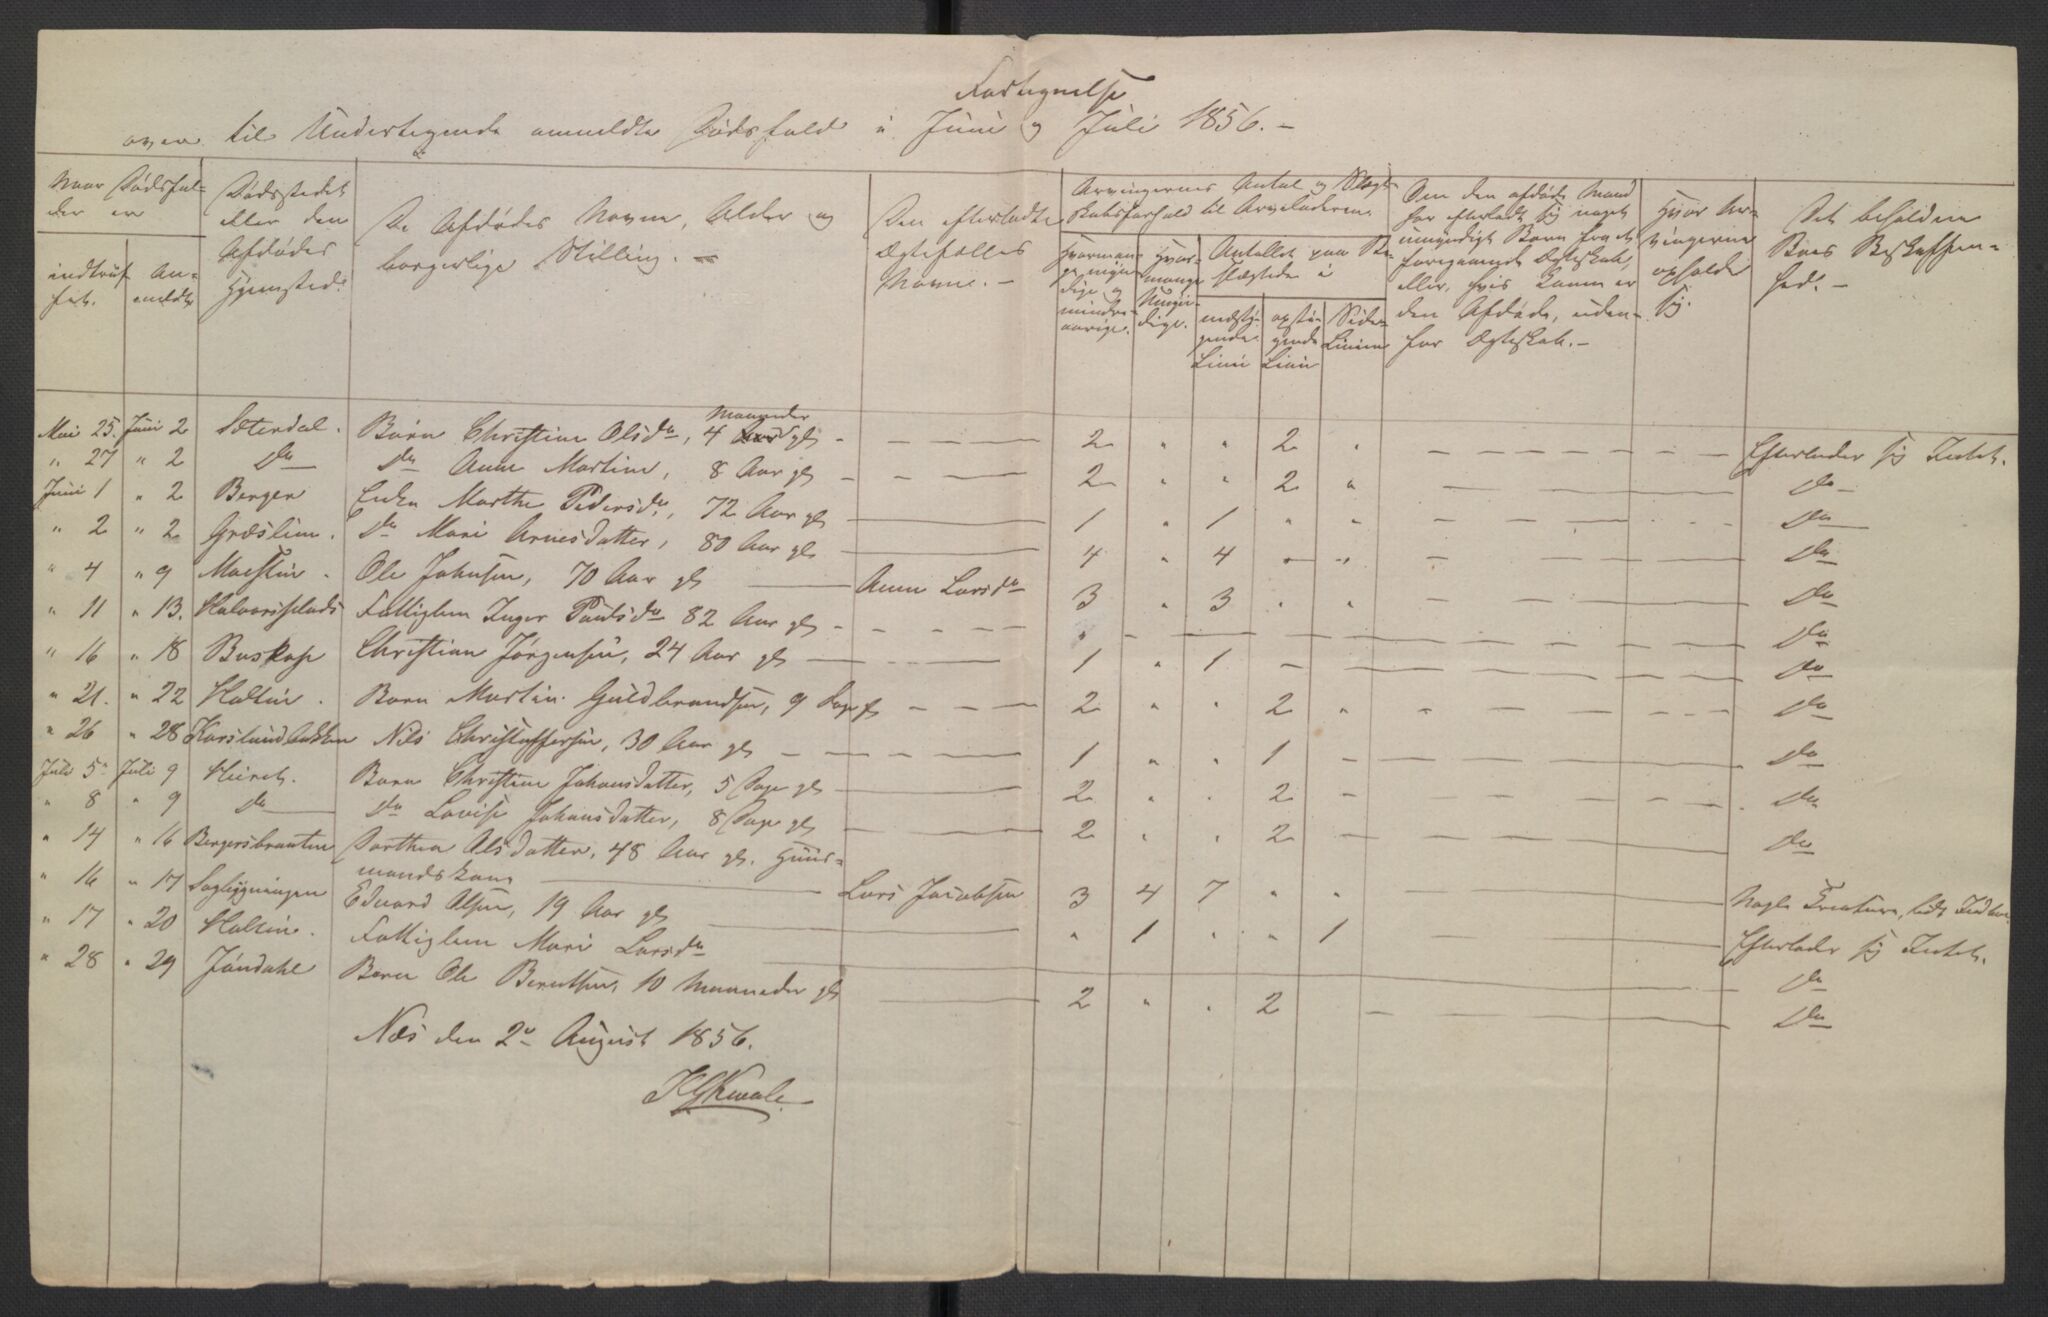 Fortegnelse
over til Undertegnede anmeldte Dødsfald i Juni og Juli 1856. –
Naar Dødsfal-
det er
indtruf-
fet.
An-
meldt.
Dødsstedet
eller den
Afdødes
Hjemsted.
De Afdødes Navne, Alder og
borgerlige Stilling. –
Den efterladte
Ægtefælles
Navn. –
Arvingernes Antal og Slægt-
skabsforhold til Arveladeren.
Hvorman-
ge myn-
dige og
mindre-
aarige.
Hvor-
mange
Umyn-
dige.
Antallet paa Be-
slægtede i
nedsti-
gende
Linie
opsti-
gende
Linie
Side-
Linien
Om den afdøde Mand
har efterladt sig noget
umyndigt Barn fra et
foregaaende Ægteskab,
eller, hvis Konen er
den Afdøde, uden-
for Ægteskab. –
Hvor Ar-
vingerne
opholde
sig.
Det beholdne
Boes Beskaffen-
hed. –
Mai 25. Juni 2 Sæterdal. Barn Christine Olsdr, 4 Maaneder gl – – – – 2 " " 2 " – – – – – – Efterlader sig Intet.
" 27 " 2 Do Do Anne Martine, 8 Aar gl – – – – 2 " " 2 " – – – – Do
Juni 1 " 2 Bergen Enke Marthe Pedersdr, 72 Aar gl 1 " 1 " " – – – Do
" 2 " 2 Græslien. Do Mari Arnesdatter, 80 Aar gl 4 " 4 " " – – – Do
" 4 " 9 Ole Johnsen, 70 Aar gl Anne Larsdr 3 " 3 " " – – – Do
" 11 " 13. Halvorsplads Fattiglem Inger Paulsdr 82 Aar gl – – – – " – – – – Do
" 16 " 18 Buskop Christian Jørgensen, 24 Aar gl 1 " 1 – – – Do
" 21. " 22 Barn Martin Guldbrandsen, 9 Dage gl – – – 2 " " 2 " " – – – Do
" 26 " 28 Karslundbakken Nils Christoffersen, 30 Aar gl – – – 1 " " 1 – – – Do
Juli 5 Juli 9 Barn Christine Johansdatter, 5 Dage gl 2 " " 2 – – – Do
" 8 " 9 Do Do Lovise Johansdatter, 8 Dage gl 2 " " 2 – – – Do
" 14 " 16 Bergersbraaten Dorthea Olsdatter, 48 Aar gl. Huus-
mandskone Lars Jacobsen 3 4 7 " " – – – Nogle Creature, lidt Indbo.
" 16 " 17 Sagbygningen Edvard Olsen, 19 Aar gl " 1 " " 1 – – – Efterlader sig Intet.
" 17 " 20 Fattiglem Mari Larsdr Do
" 28 " 29 Jøndahl Barn Ole Berntsen, 10 Maaneder gl 2 " " 2 – – – Do
Næs den 2n August 1856.